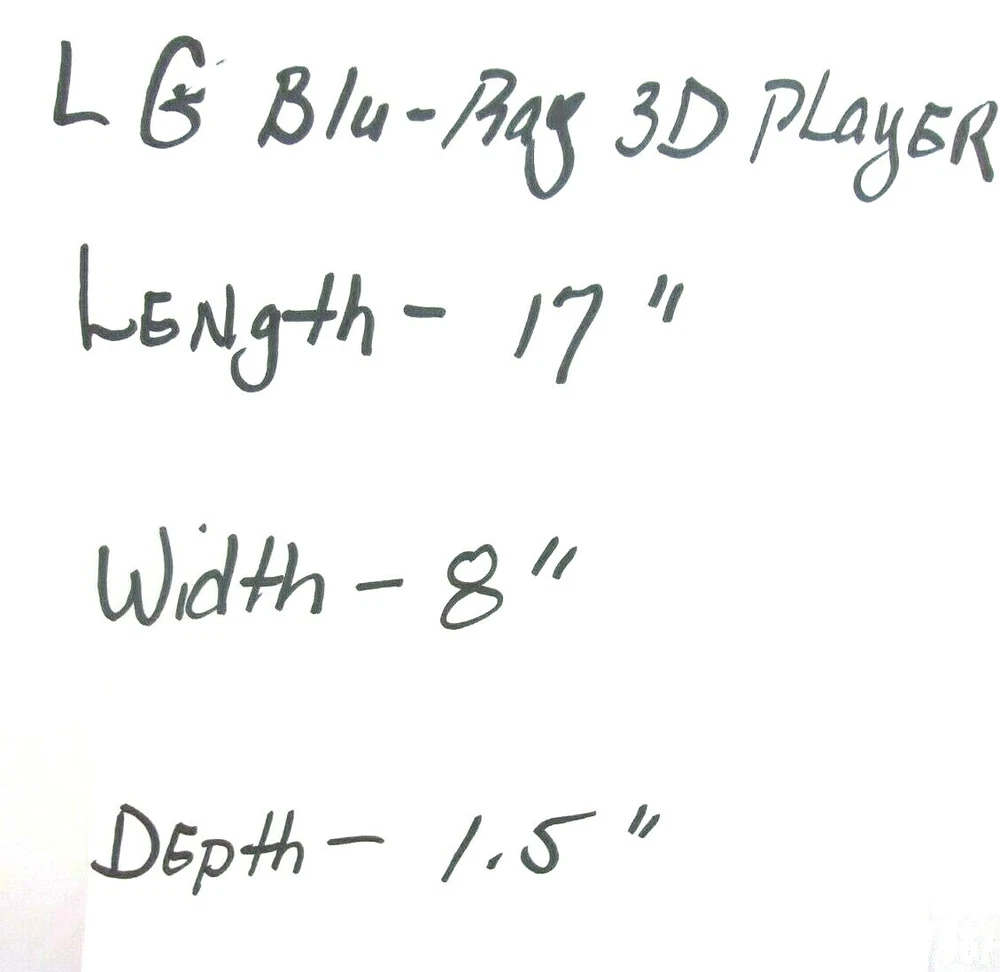 LG Blu-Ray 3D Player
Length - 17"
Width - 8"
Depth - 1.5"